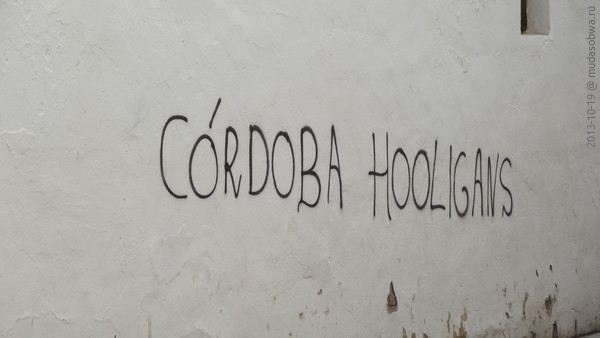 CÓRDOBA HOOLIGANS
2013-10-19 @ mudasobwa.ru